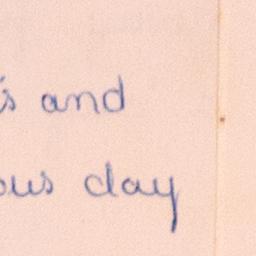 's and
ous day